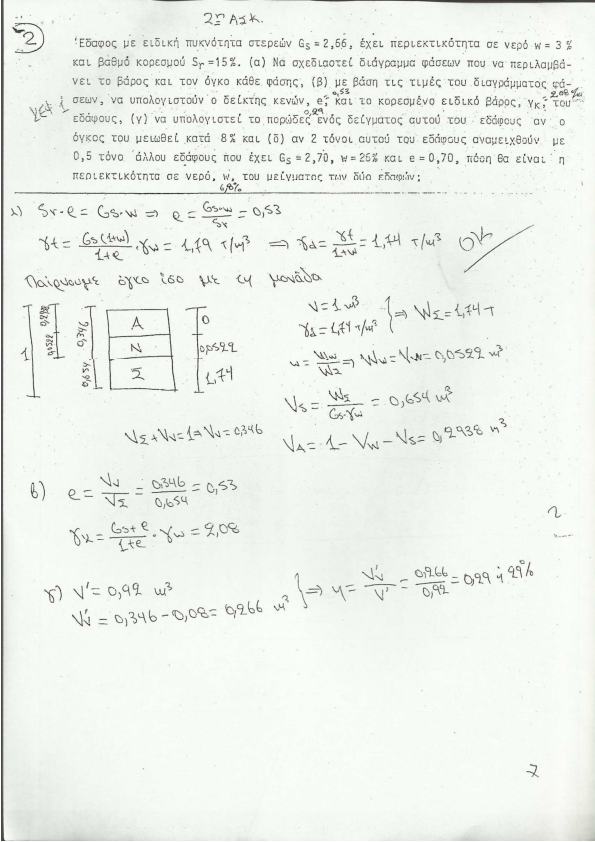 2η ΑΣΚ.
2
Έδαφος με ειδική πυκνότητα στερεών Gs = 2,66, έχει περιεκτικότητα σε νερό w = 3 %
και βαθμό κορεσμού Sr =15%. (α) Να σχεδιαστεί διάγραμμα φάσεων που να περιλαμβά-
νει το βάρος και τον όγκο κάθε φάσης, (β) με βάση τις τιμές του διαγράμματος φά-
0,53
σεων, να υπολογιστούν ο δείκτης κενών, e, και το κορεσμένο ειδικό βάρος, γκ, του
0,29
εδάφους, (γ) να υπολογιστεί το πορώδες ενός δείγματος αυτού του εδάφους αν ο
όγκος του μειωθεί κατά 8% και (δ) αν 2 τόνοι αυτού του εδάφους αναμειχθούν με
0,5 τόνο άλλου εδάφους που έχει Gs = 2,70, w = 26% και e = 0,70, πόση θα είναι η
περιεκτικότητα σε νερό, w, του μείγματος των δύο εδαφών;
6,8%
α) Sr·e = Gs·w ⇒ e = Gs·w/Sr = 0,53
γt = Gs(1+w)/1+e · γw = 1,79 T/m³ ⇒ γd = γt/1+w = 1,74 T/m³ OK
Παίρνουμε όγκο ίσο με τη μονάδα
1 0,0522 0,346 0,654
Α 0
Ν 0,0522
Σ 1,74
V = 1 m³
γd = 1,74 T/m³ } ⇒ WΣ = 1,74 T
w = Ww/WΣ ⇒ Ww = Vw = 0,0522 m³
Vs = WΣ/Gs·γw = 0,654 m³
VΣ + Vv = 1 ⇒ Vv = 0,346
VA = 1 - Vw - Vs = 0,2938 m³
β) e = Vv/VΣ = 0,346/0,654 = 0,53
γκ = Gs+e/1+e · γw = 2,08
2
γ) V' = 0,92 m³
Vv' = 0,346 - 0,08 = 0,266 m³ } ⇒ η = Vv'/V' = 0,266/0,92 = 0,29 ή 29%
7